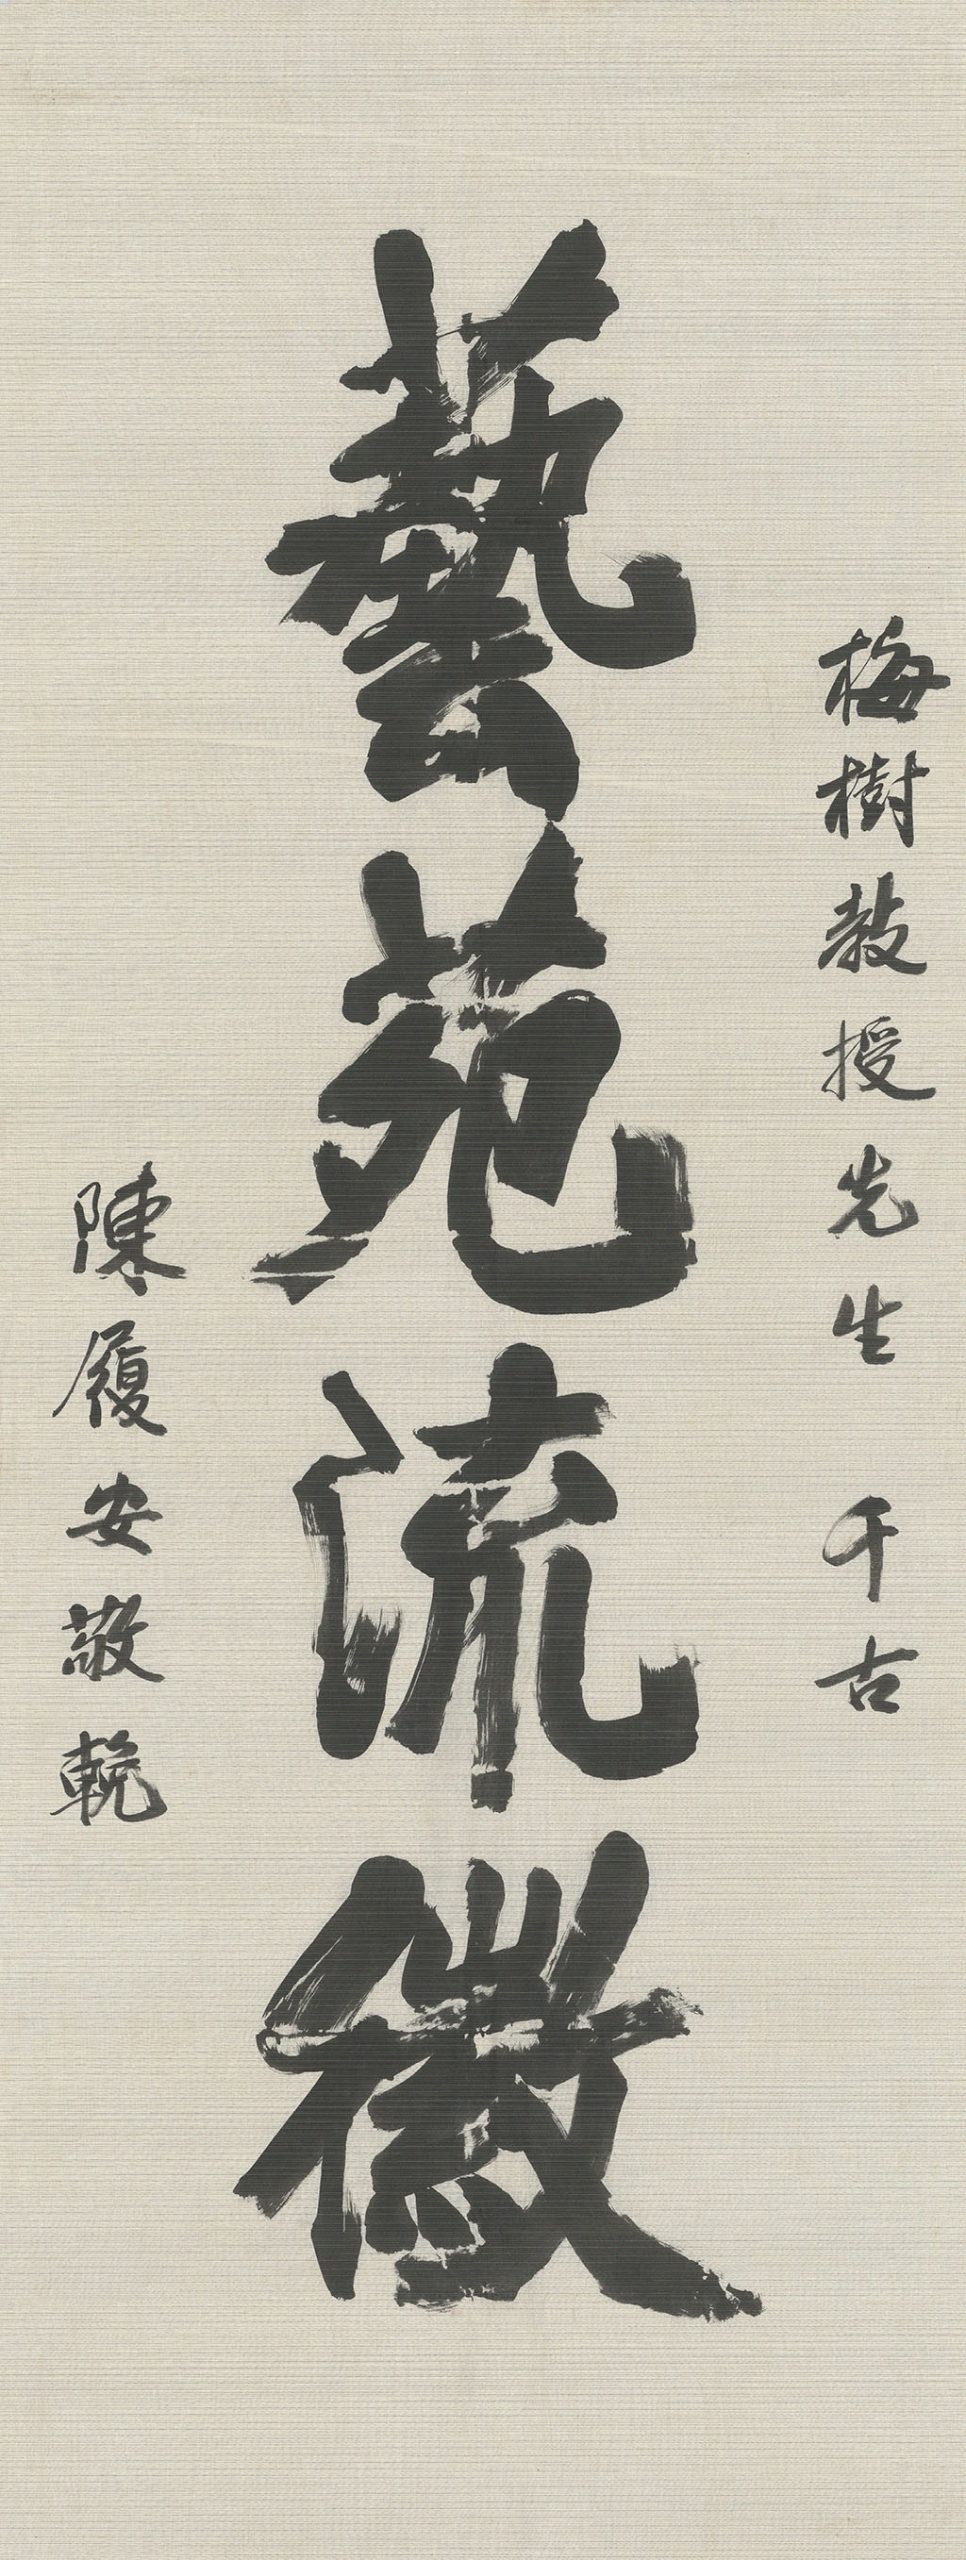 梅樹教授先生 千古
藝苑流徽
陳履安敬輓